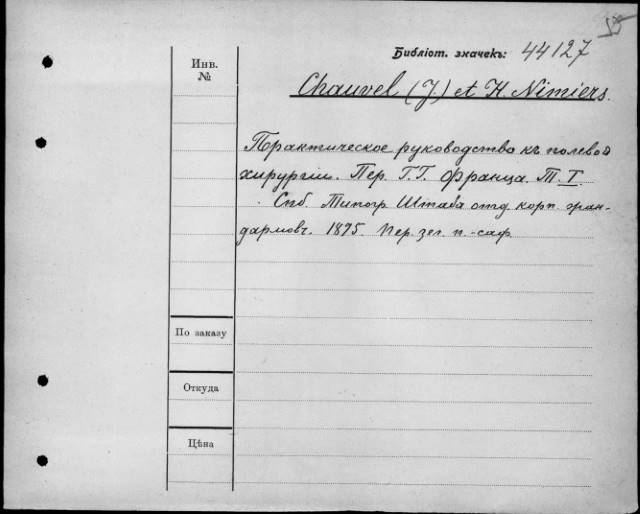 Библіот. значекъ: 44127
Инв.
№
Chauvel (J.) et H. Nimiers.
Практическое руководство къ полевой
хирургіи. Пер. Г.Г. Франца. Т. I.
Спб. Типогр. Штаба отд. корп. жан-
дармовъ. 1895. Пер. зел. п.-саф.
По заказу
Откуда
Цѣна